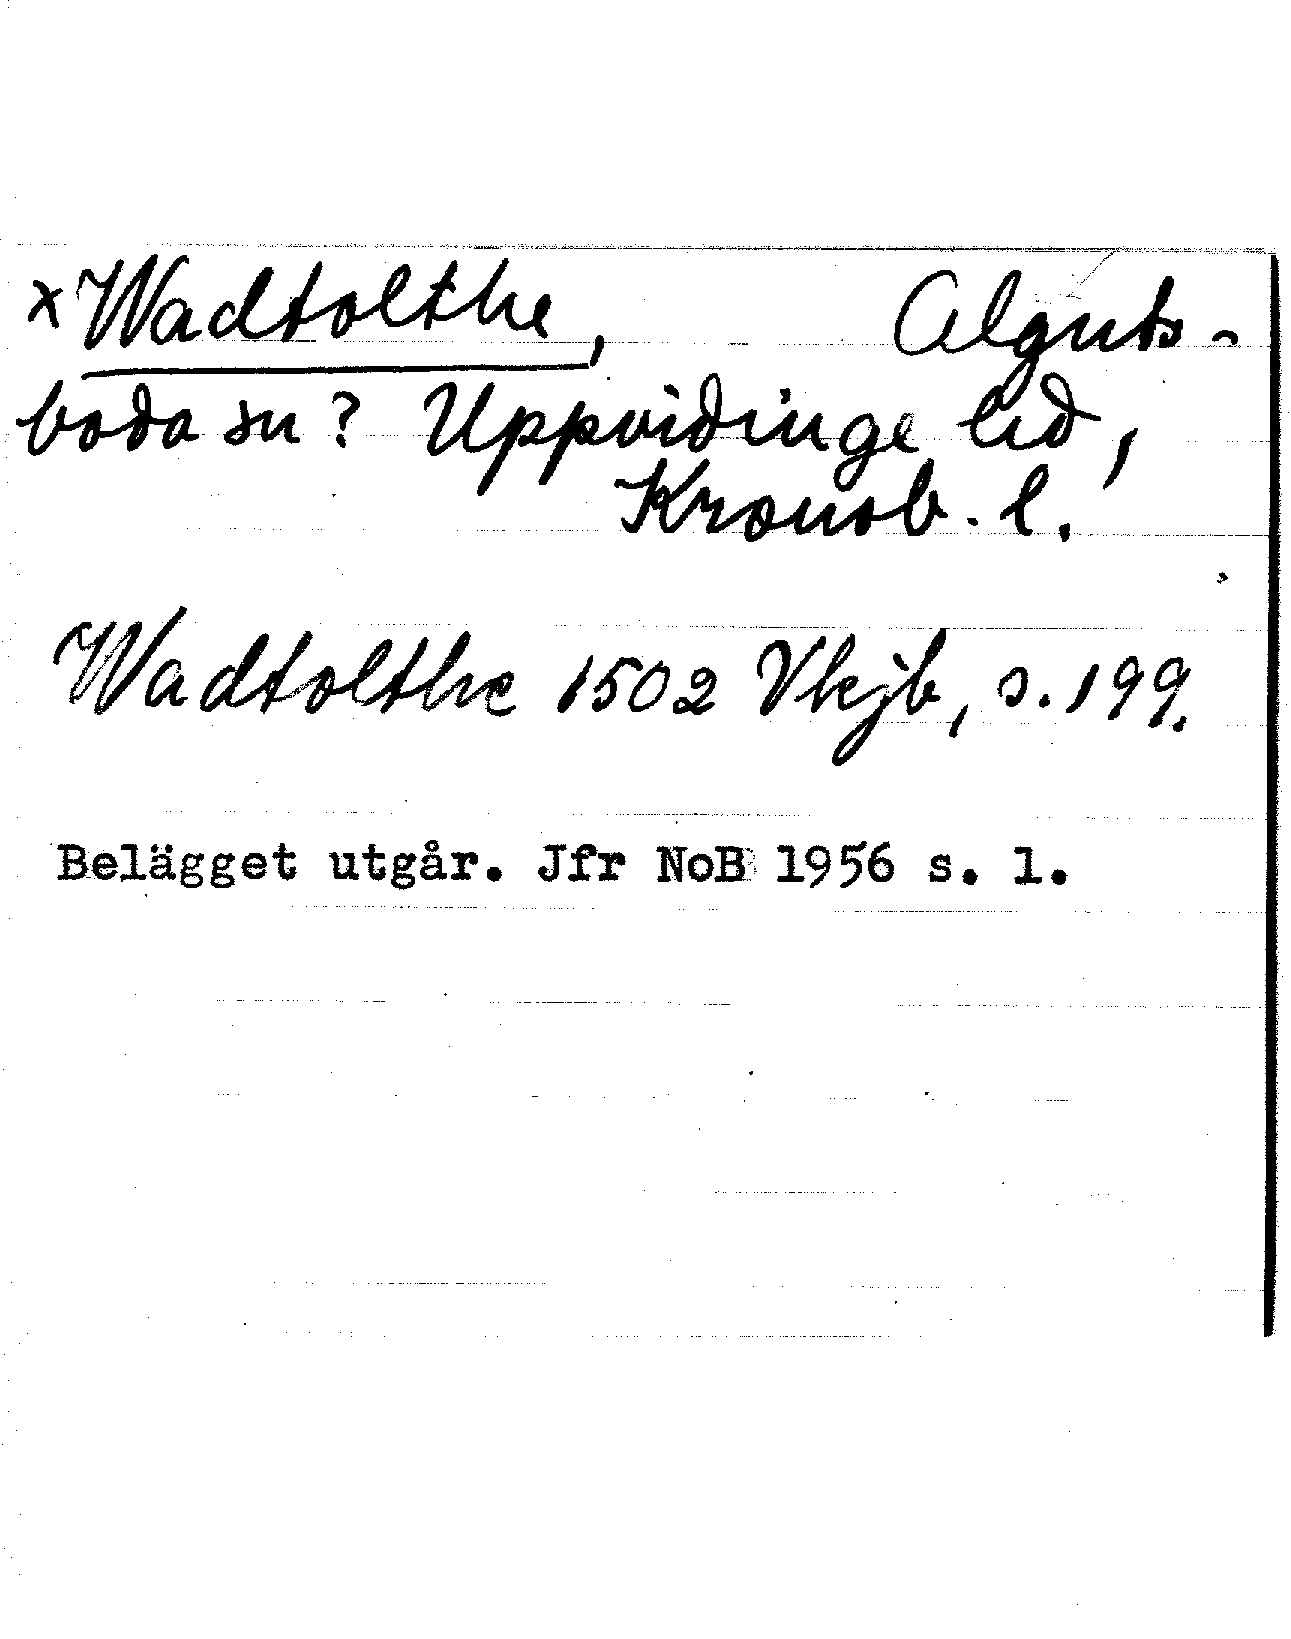 x Wadtolthe, Alguts-
boda sn? Uppvidinge hd,
Kronob. l.
Wadtolthe 1502 Vkjb, s. 199.
Belägget utgår. Jfr NoB 1956 s. 1.